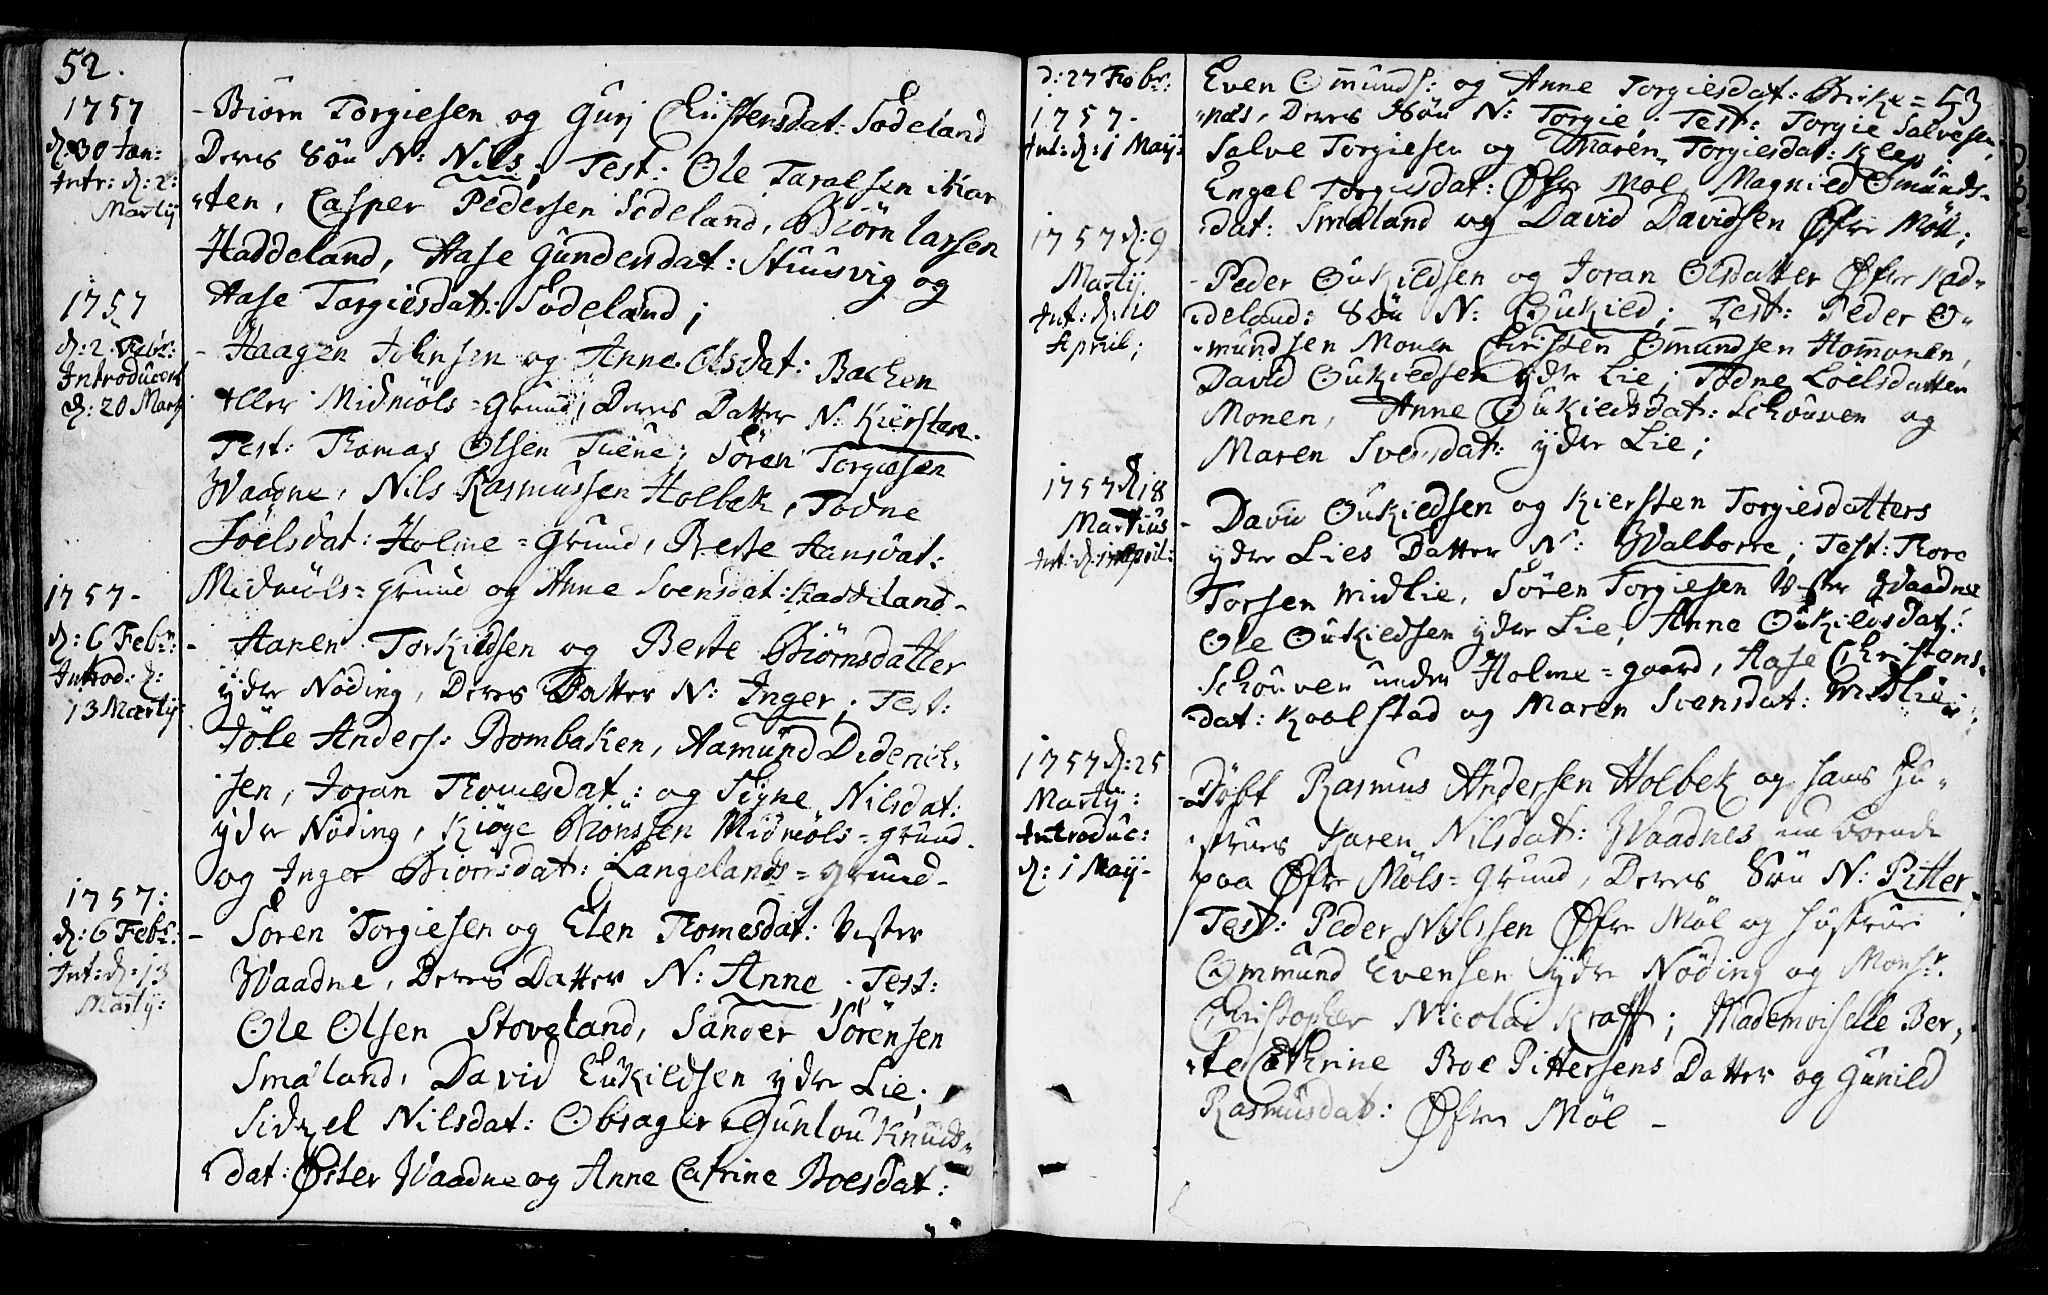 52.
1757
d: 30 Jan:
Intr: d: 2:
Martij
- Biörn Torgiesen og Gurj Christensdat: Sodeland
Deres Sön N: Nils; Test: Ole Taralsen Kar
ten, Casper Pedersen Sodeland, Biörn Larsen
Haddeland, Aase Gundersdat: Stuusvig og
Aase Targiesdat: Sodeland;
1757
d: 2. Febr:
Introducert
d: 20 Mart
- Haagen Johnsen og Anne Olsdat: Backen
eller Midmöls = grund, Deres Datter N: Kiersten.
Test: Thomas Olsen Tuene; Sören Torgiesen
Waadne, Nils Rasmussen Holbek, Todne
Joelsdat: Holme = grund, Berte Hansdat:
Midmöls = grund og Anne Svensdat: Haddeland -
1757 -
d: 6 Febr:
Introd: d:
13 Martij
- Aanen Torkildsen og Berte Biörnsdatter
ydre Nöding, Deres Datter N: Inger; Test:
Jöle Anders: Bombaken, Aamund Diderich-
sen, Joran Thomesdat: og Signe Nilsdat:
ydre Nöding, Kiöge Biönssen Midmöls = grund.
og Inger Biörnsdat: Langelands = grund -
1757:
d: 6 Febr:
Int: d: 13
Martij:
- Sören Torgiesen og Elen Thomesdat: Vester
Waadne, Deres Datter N: Anne. Test:
Ole Olsen Stoveland, Sander Sörensen
Småland, David Eukildsen ydre Lie;
Sidzel Nilsdat: Obrager Gunlou Knuds-
dat: Öster Waadne og Anne Catrine Boesdat:
53
d: 27 Febr:
1757 -
Int: d: 1 Maij:
Even Omunds: og Anne Torgiesdat: Birke =
næs, Deres Sön N: Torgie; Test: Torgie Salvesen,
Salve Torgiesen og Maren Torgiesdat: Klep;
Engel Torgiesdat: Øfre Möl Magnild Omunds-
dat: Småland og David Davidsen Øfre Möll;
1757 d: 9
Martij
Int: d: 10
April;
- Peder Oukildsen og Joran Olsdatter Øfre Had-
deland: Sön N: Oukild; Test: Peder O-
mundsen Monen Christen Omundsen Hommonen,
David Oukildsen ydre Lie; Todne Loelsdatter
Monen, Anne Oukieldsdat: Schouven og
Maren Svensdat: ydre Lie;
1757 d: 18
Martius
Int: d: April:
- David Oukiedsen og Kiersten Torgiesdatters
ydre Lies Datter N: Walborre; Test: Thore
Torsen Midlie, Sören Torgiesen Vester Waadne
Ole Oukieldsen ydre Lie, Anne Oukildsdat:
Schouven under Holme = gaard, Aase Christens-
dat: Kaalstad og Maren Svensdat: Midlie;
1757 d: 25
Martij:
Introduc:
d: 1 Maij -
- Döbt Rasmus Andersen Holbek og hans Hu-
strues Karen Nilsdat: Waadnes nu boende
paa Øfre Möls = grund, Deres Sön N: Pitter.
Test: Peder Nilssen Øfre Möl og Hustrue
Ommund Evensen ydre Nöding og Monsr.
Christopher Nicolai Kraft; Mademoiselle Ber-
te Cathrine Boe Pittersens Datter og Gunild
Rasmusdat: Øfre Möl -